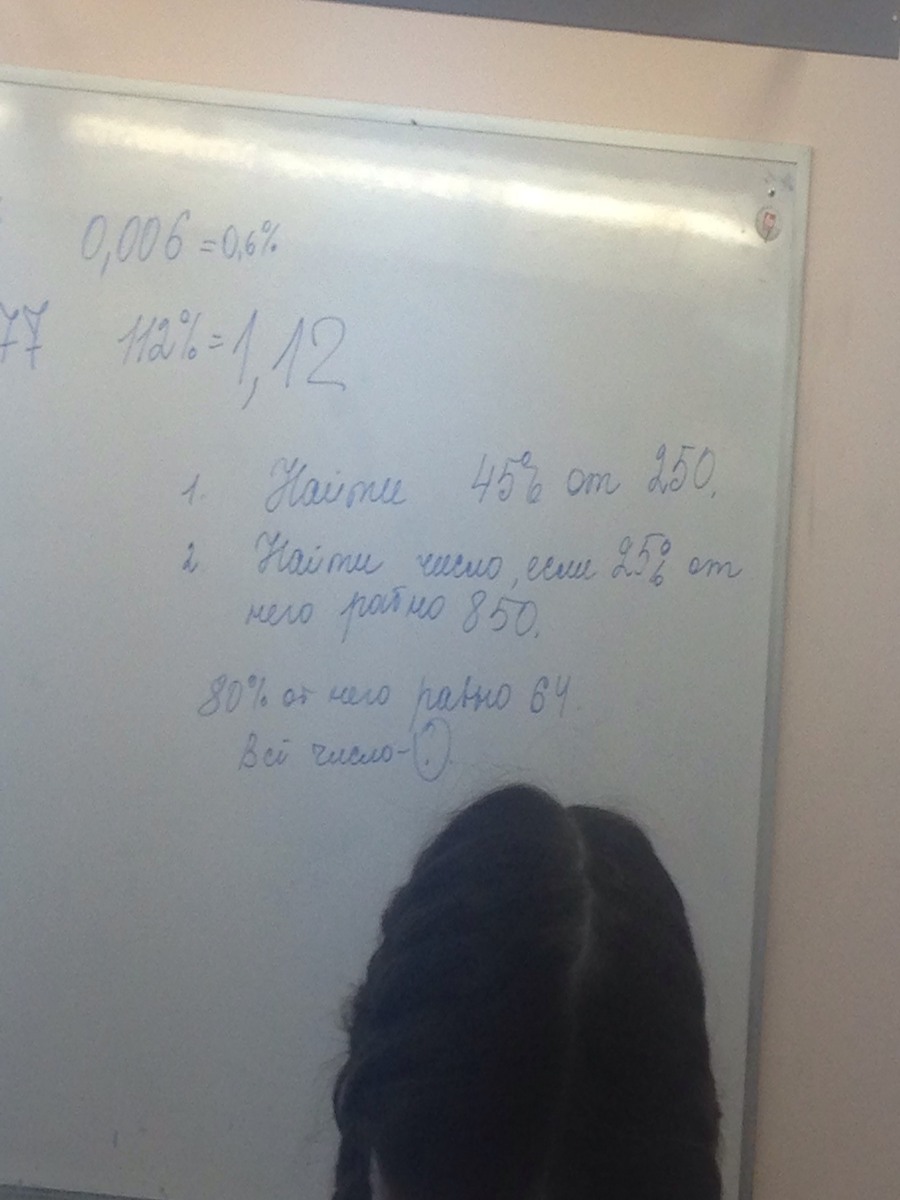 0,006 = 0,6%
77 112% = 1,12
1. Найти 45% от 250.
2 Найти число, если 25% от
него равно 850.
80% от него равно 64
Всё число - ?